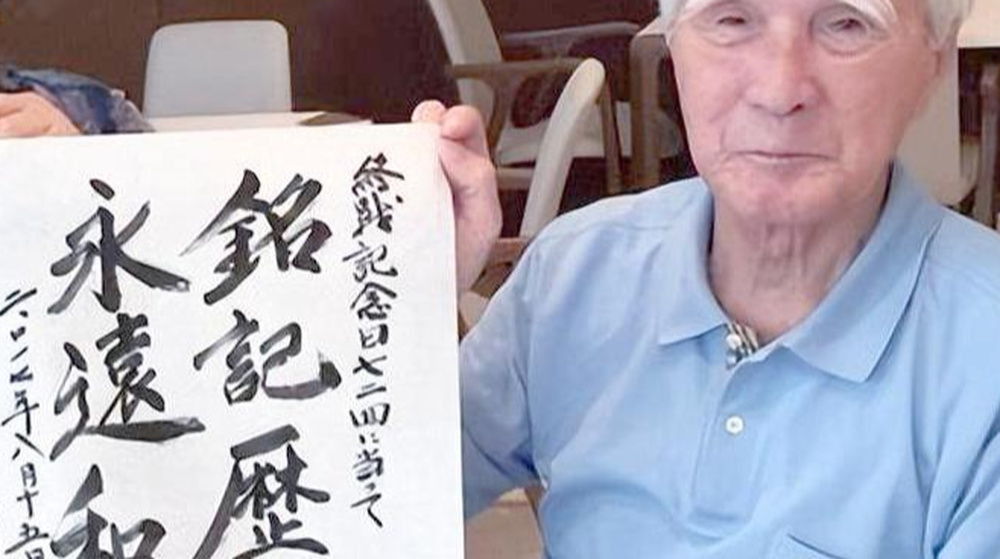 終戦記念日七二回に当って
銘記歴
永遠和
二〇一七年八月十五日